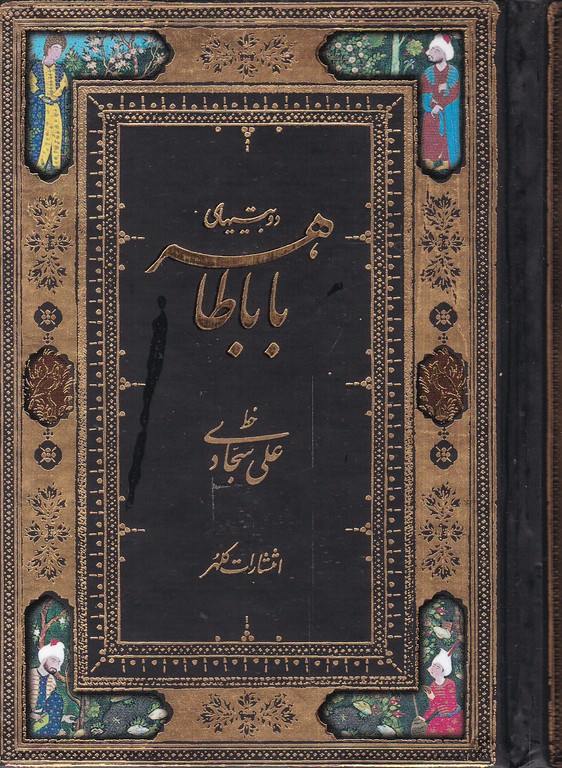 دوبیتیهای
باباطاهر
خط
علی سجادی
انتشارات کلهر